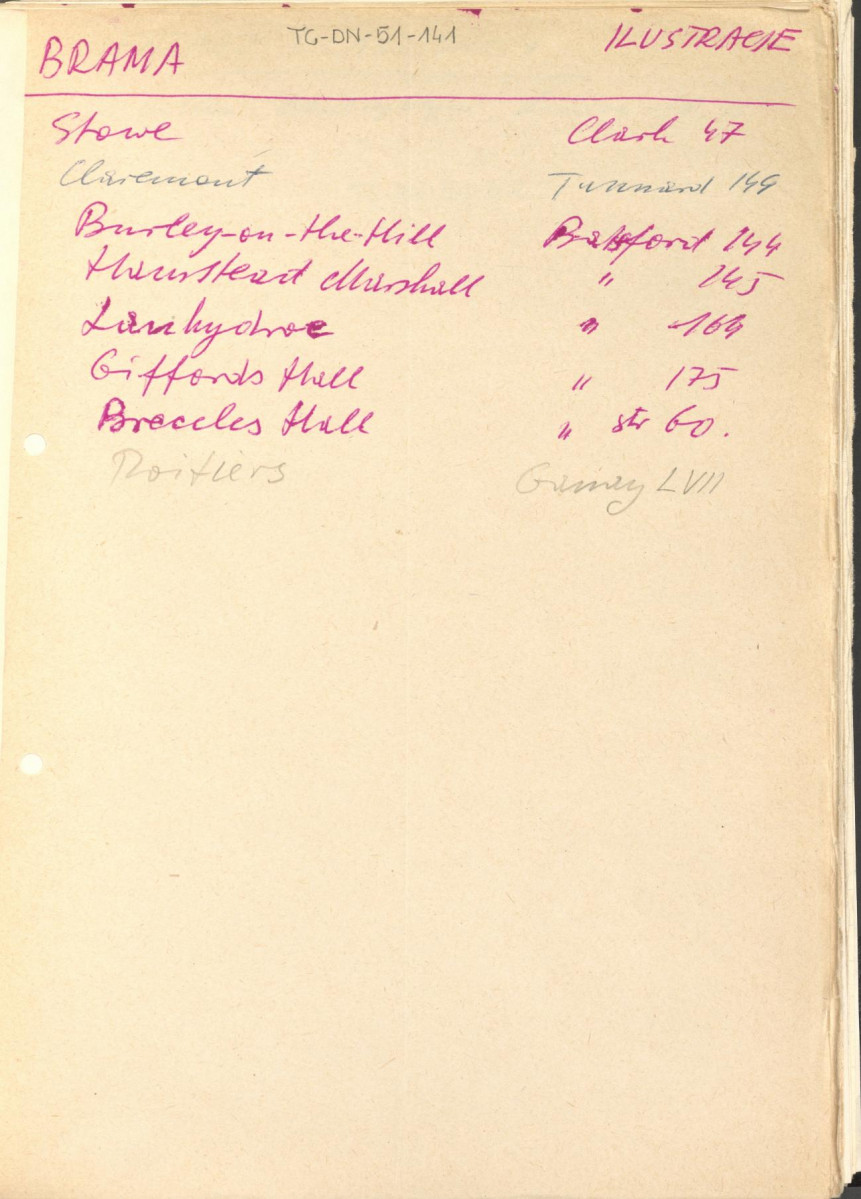 TG-DN-51-141
BRAMA ILUSTRACJE
Stowe Clark 47
Claremont Tunnard 149
Burley-on-the-Hill Batsford 144
Hamstead Marshall " 145
Lanhydroc " 164
Giffords Hall " 175
Breccles Hall " str 60.
Poitiers LVII